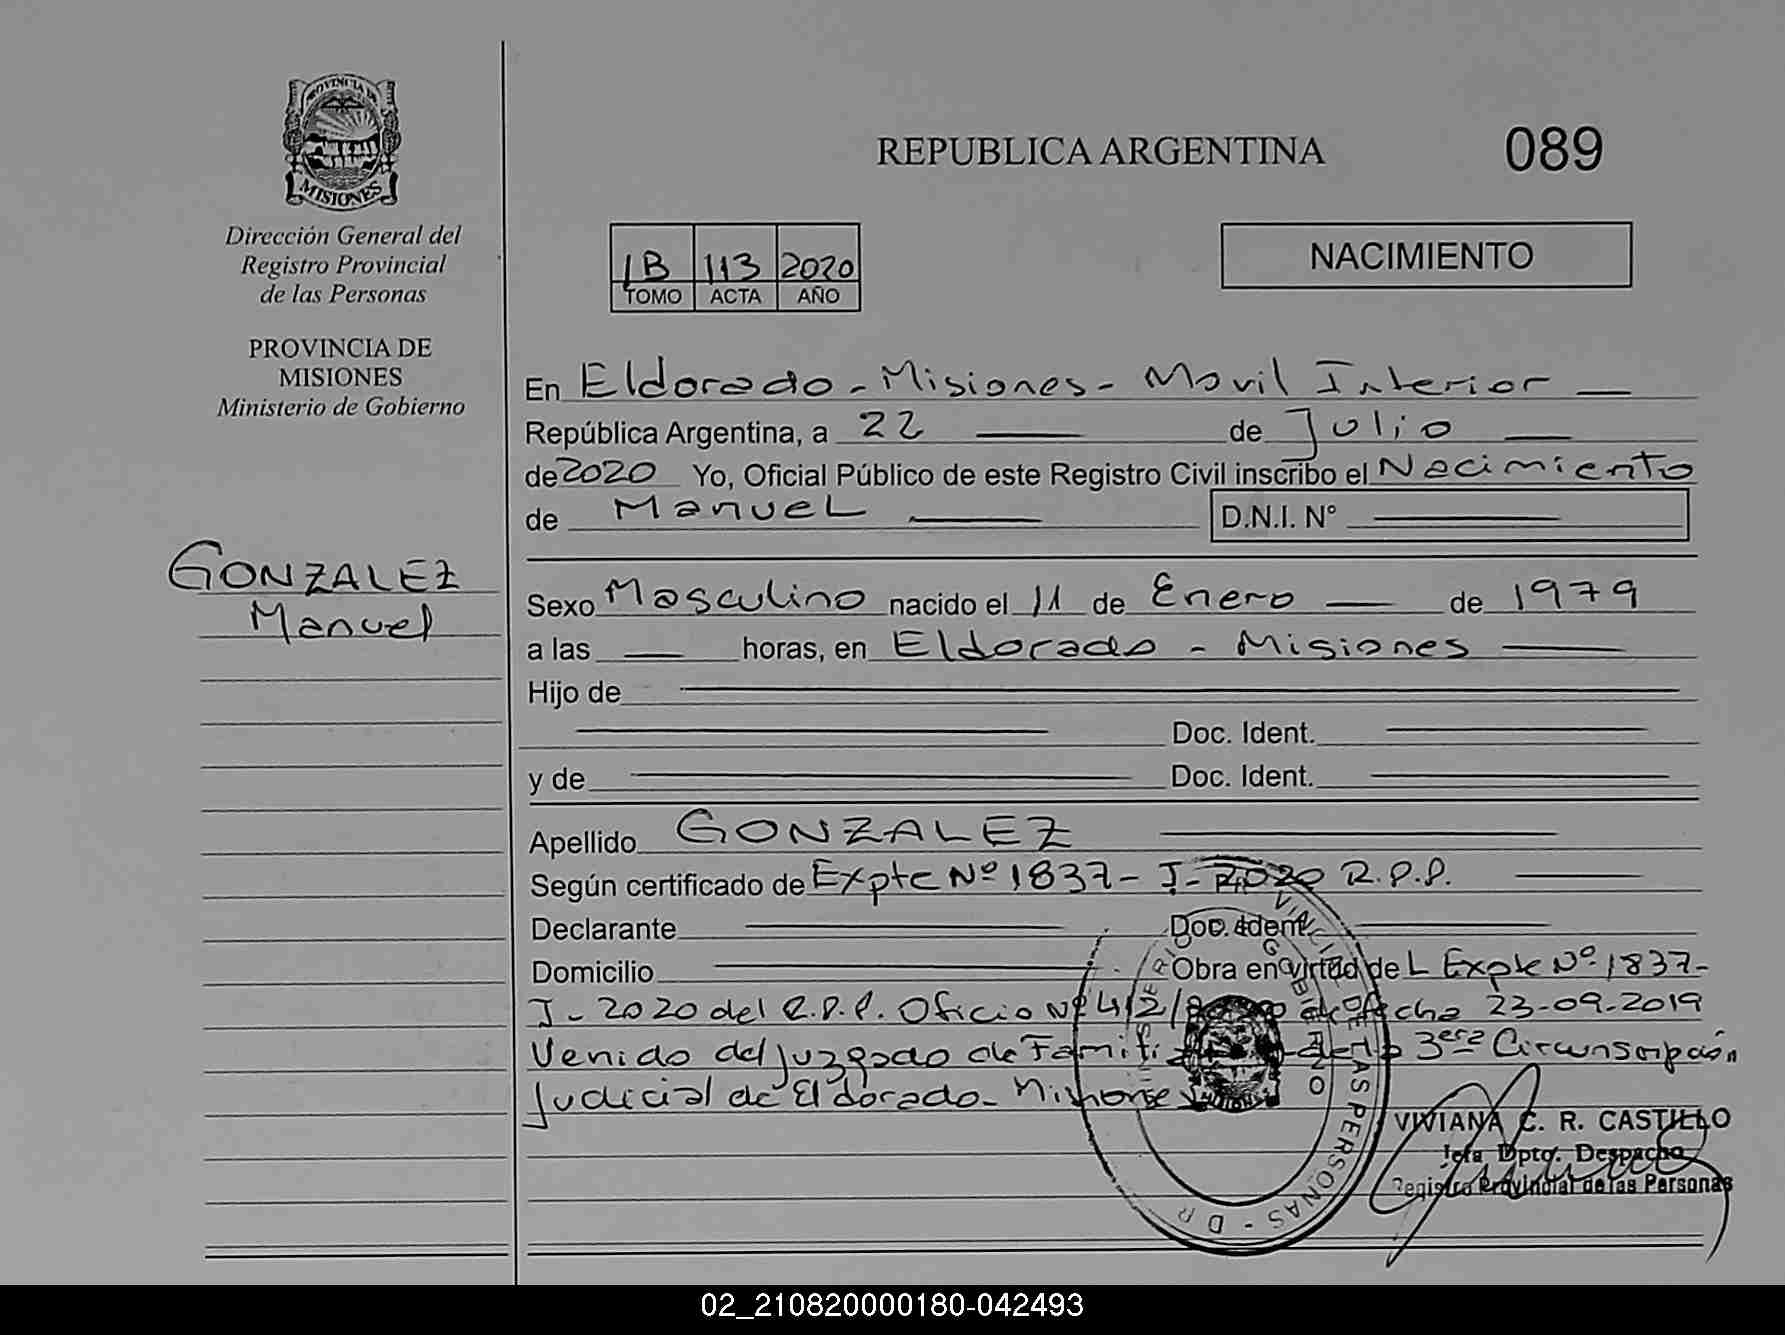 PROVINCIA DE
MISIONES
Dirección General del
Registro Provincial
de las Personas
PROVINCIA DE
MISIONES
Ministerio de Gobierno
GONZALEZ
Manuel
REPUBLICA ARGENTINA
089
1B 113 2020
TOMO ACTA AÑO
NACIMIENTO
En Eldorado - Misiones - Movil Interior
República Argentina, a 22 de Julio
de 2020 Yo, Oficial Público de este Registro Civil inscribo el Nacimiento
de Manuel D.N.I. N°
Sexo Masculino nacido el 11 de Enero de 1979
a las horas, en Eldorado - Misiones
Hijo de
Doc. Ident.
y de Doc. Ident.
Apellido GONZALEZ
Según certificado de Expte Nº 1837 - J - 2020 R.P.P.
Declarante Doc. Ident.
Domicilio Obra en virtud de L Expte Nº 1837-
J - 2020 del R.P.P. Oficio Nº 412/ de fecha 23-09-2019
Venido del Juzgado de de la 3era Circunscripción
Judicial de Eldorado - Misiones
VIVIANA C. R. CASTILLO
Jefa Dpto. Despacho
Registro Provincial de las Personas
02_210820000180-042493